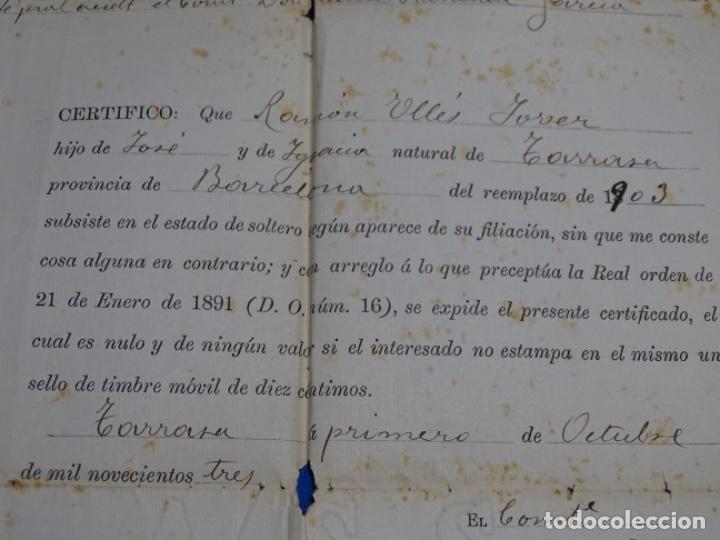 García
CERTIFICO: Que Ramón Ullés Jover
hijo de José y de Ignacia natural de Tarrasa
provincia de Barcelona del reemplazo de 1903
subsiste en el estado de soltero según aparece de su filiación, sin que me conste
cosa alguna en contrario; y con arreglo á lo que preceptúa la Real orden de
21 de Enero de 1891 (D. O. núm. 16), se expide el presente certificado, el
cual es nulo y de ningún valor si el interesado no estampa en el mismo un
sello de timbre móvil de diez céntimos.
Tarrasa á primero de Octubre
de mil novecientos tres
EL Comte
todocoleccion
todocoleccion.net